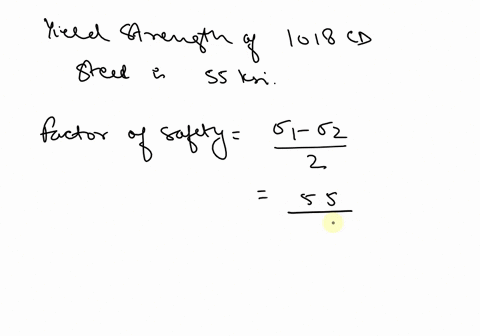 Yield Strength of 1018 CD
Steel is 55 ksi.
factor of safety = σ1 - σ2 / 2
= 55 /